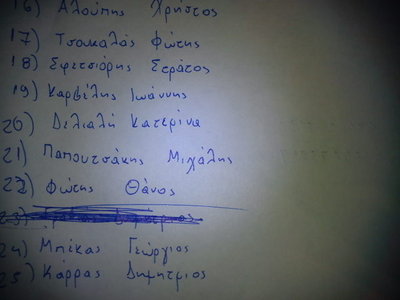 16) Αλούπης Χρήστος
17) Τσακαλάς Φώτης
18) Εφετσιόρης Στράτος
19) Καρβέλης Ιωάννης
20) Δελιαλή Κατερίνα
21) Παπουτσάκης Μιχάλης
22) Φώτης Θάνος
23)
24) Μπέκας Γεώργιος
25) Κάρρας Δημήτριος